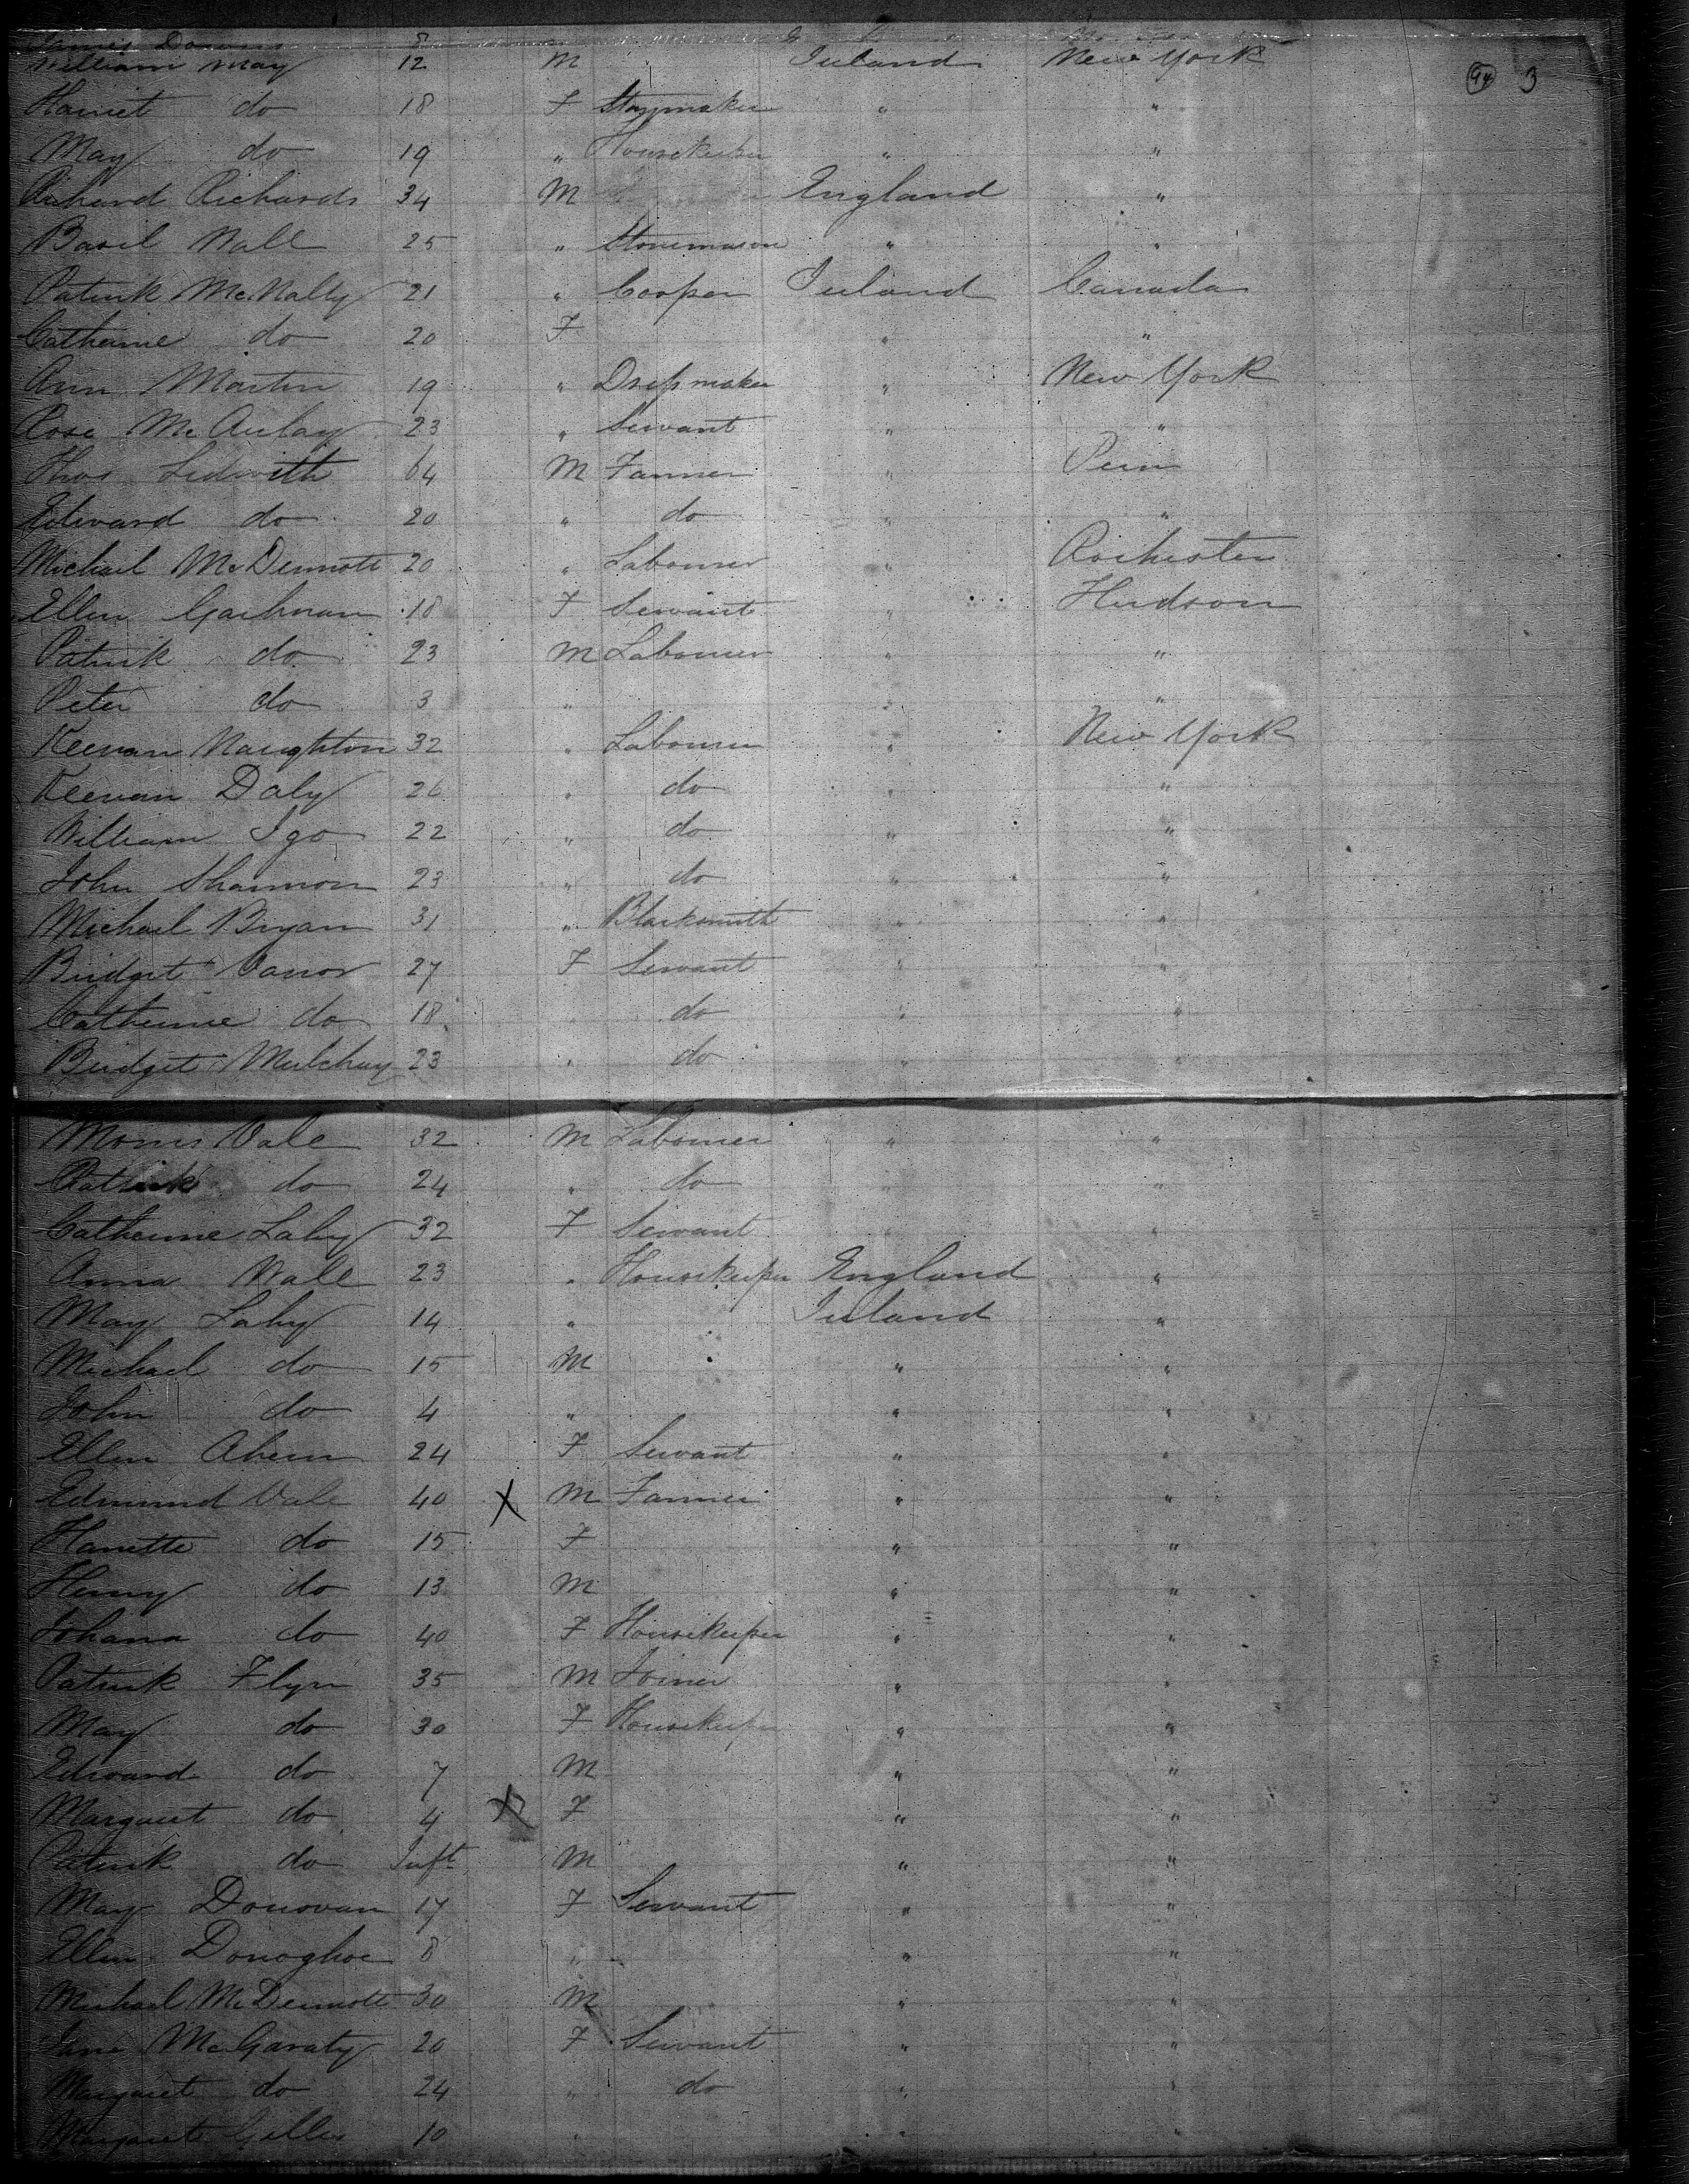 James Downs 8
William May 12 M Ireland New York
94 3
Harriet do 18 F Staymaker " "
May do 19 " Housekeeper " "
Richard Richards 34 M England "
Basil Wall 25 " Stonemason " "
Patrick McNally 21 " Cooper Ireland Canada
Catherine do 20 F " "
Ann Martin 19 " Dressmaker " New York
Rose McAulay 23 " Servant " "
Thos Ledwith 64 M Farmer " Penn
Edward do 20 " do " "
Michael McDermott 20 " Labourer " Rochester
Ellen 18 F Servant " Hudson
Patrick do 23 M Labourer " "
Peter do 3 " " "
Keeran Naughton 32 " Labourer " New York
Keeran Daly 26 " do " "
William Igo 22 " do " "
John Shannon 23 " do " "
Michael Bryan 31 " Blacksmith " "
Bridget 27 F Servant " "
Catherine do 18 " do " "
Bridget 23 " do " "
Morris Vale 32 M Labourer " "
Patrick do 24 " do " "
Catherine Lahy 32 F Servant " "
Anna Wall 23 " Housekeeper England "
May Lahy 14 " Ireland "
Michael do 15 M " "
John do 4 " " "
Ellen Ahern 24 F Servant " "
Edmund Vale 40 X M Farmer " "
Harrette do 15 F " "
Henry do 13 M " "
Johana do 40 F Housekeeper " "
Patrick Flyn 35 M Joiner " "
May do 30 F Housekeeper " "
Edward do 7 M " "
Margaret do 4 X F " "
Patrick do Inft M " "
May Donovan 17 F Servant " "
Ellen Donoghoe 8 " " "
Michael McDermott 30 M " "
Jane McGaraty 20 F Servant " "
Margaret do 24 " do " "
Margaret 10 " " "